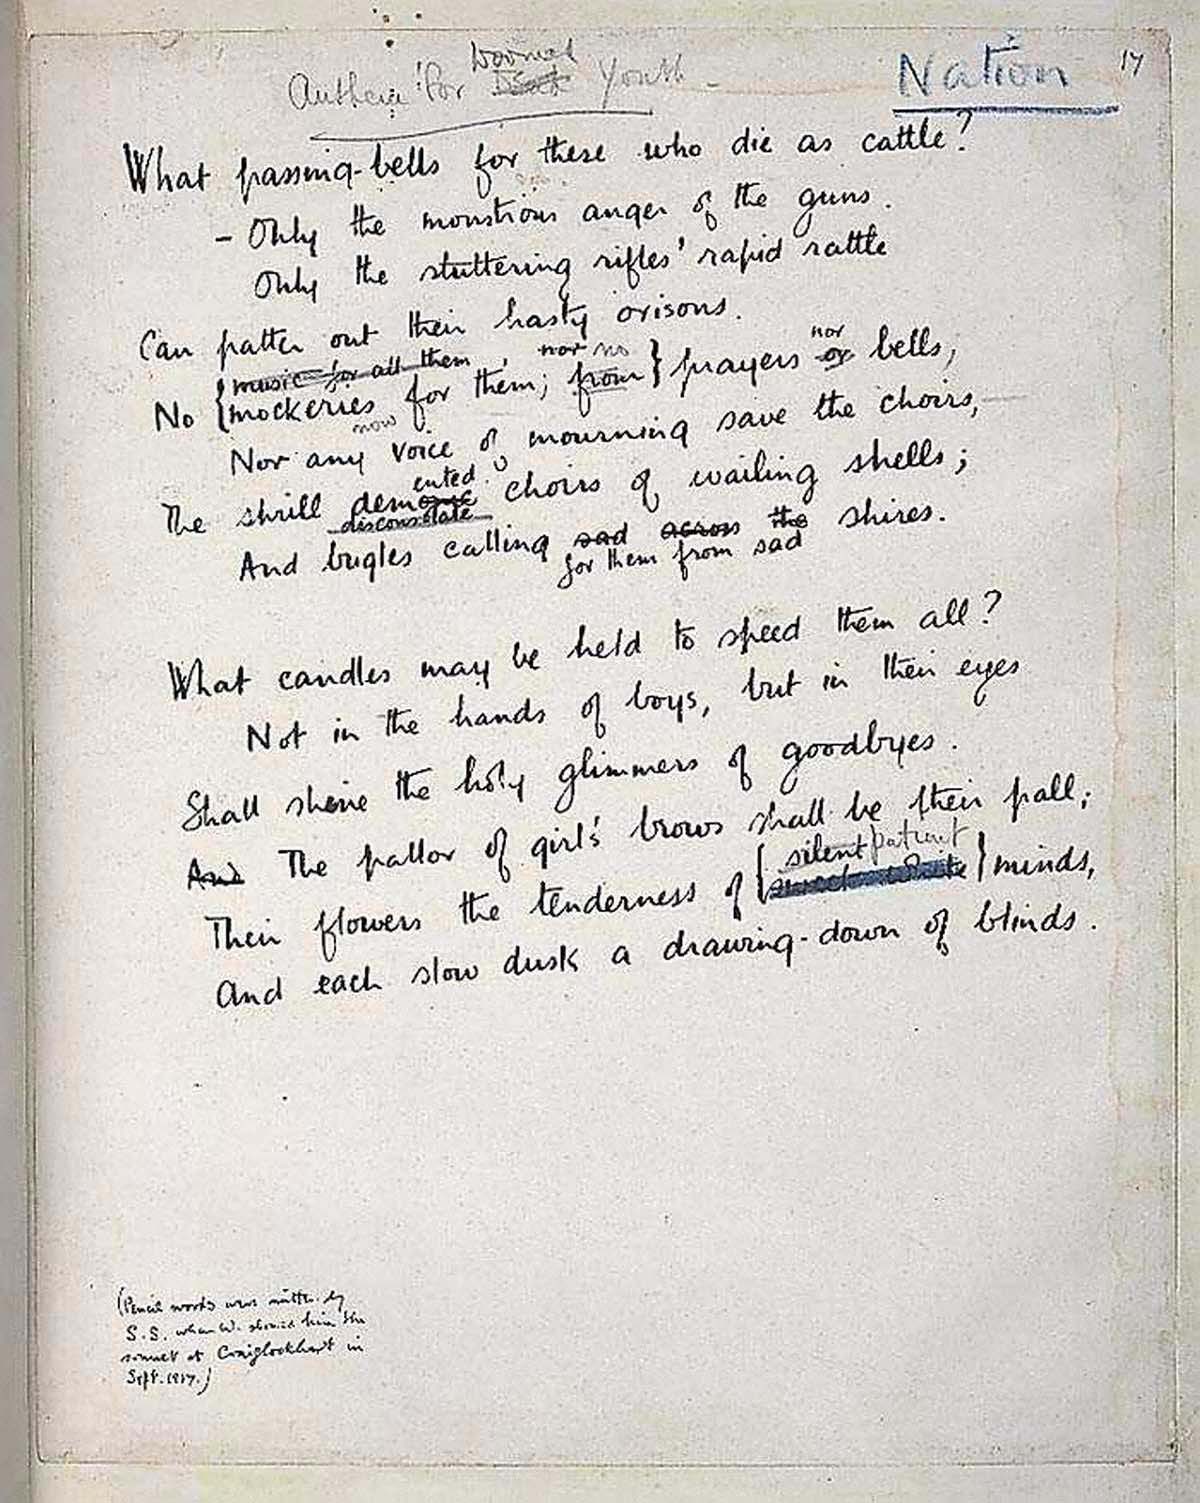 Anthem for Doomed Dead Youth - Nation 17
What passing-bells for these who die as cattle?
- Only the monstrous anger of the guns.
Only the stuttering rifles' rapid rattle
Can patter out their hasty orisons.
music for all them, nor no nor
No mockeries for them; from prayers or bells,
now
Nor any voice of mourning save the choirs,
ented
The shrill demonic choirs of wailing shells;
disconsolate
And bugles calling sad across the shires.
for them from sad
What candles may be held to speed them all?
Not in the hands of boys, but in their eyes
Shall shine the holy glimmers of goodbyes.
And The pallor of girls' brows shall be their pall;
silent patient
Their flowers the tenderness of sweet white minds,
And each slow dusk a drawing-down of blinds.
(Pencil words were written by
S.S. when W. showed him the
sonnet at Craiglockhart in
Sept. 1917.)